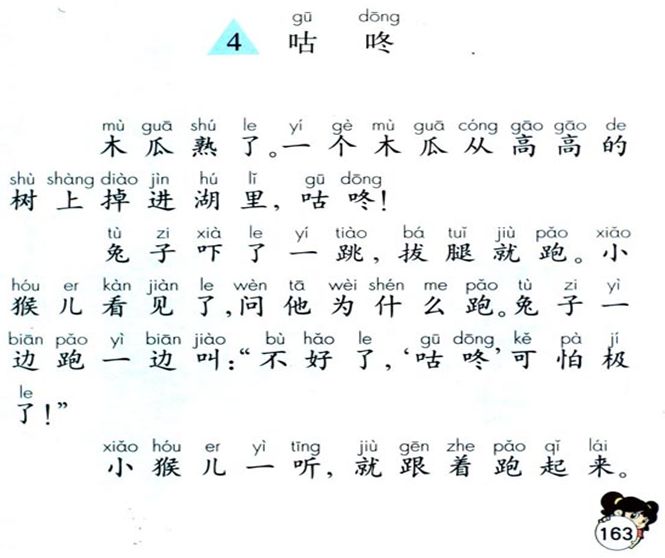 gū dōng
4 咕咚
mù guā shú le yí gè mù guā cóng gāo gāo de
木瓜熟了。一个木瓜从高高的
shù shàng diào jìn hú lǐ gū dōng
树上掉进湖里，咕咚！
tù zi xià le yí tiào bá tuǐ jiù pǎo xiǎo
兔子吓了一跳，拔腿就跑。小
hóu er kàn jiàn le wèn tā wèi shén me pǎo tù zi yì
猴儿看见了，问他为什么跑。兔子一
biān pǎo yì biān jiào bù hǎo le gū dōng kě pà jí
边跑一边叫：“不好了，‘咕咚’可怕极
le
了！”
xiǎo hóu er yì tīng jiù gēn zhe pǎo qǐ lái
小猴儿一听，就跟着跑起来。
163